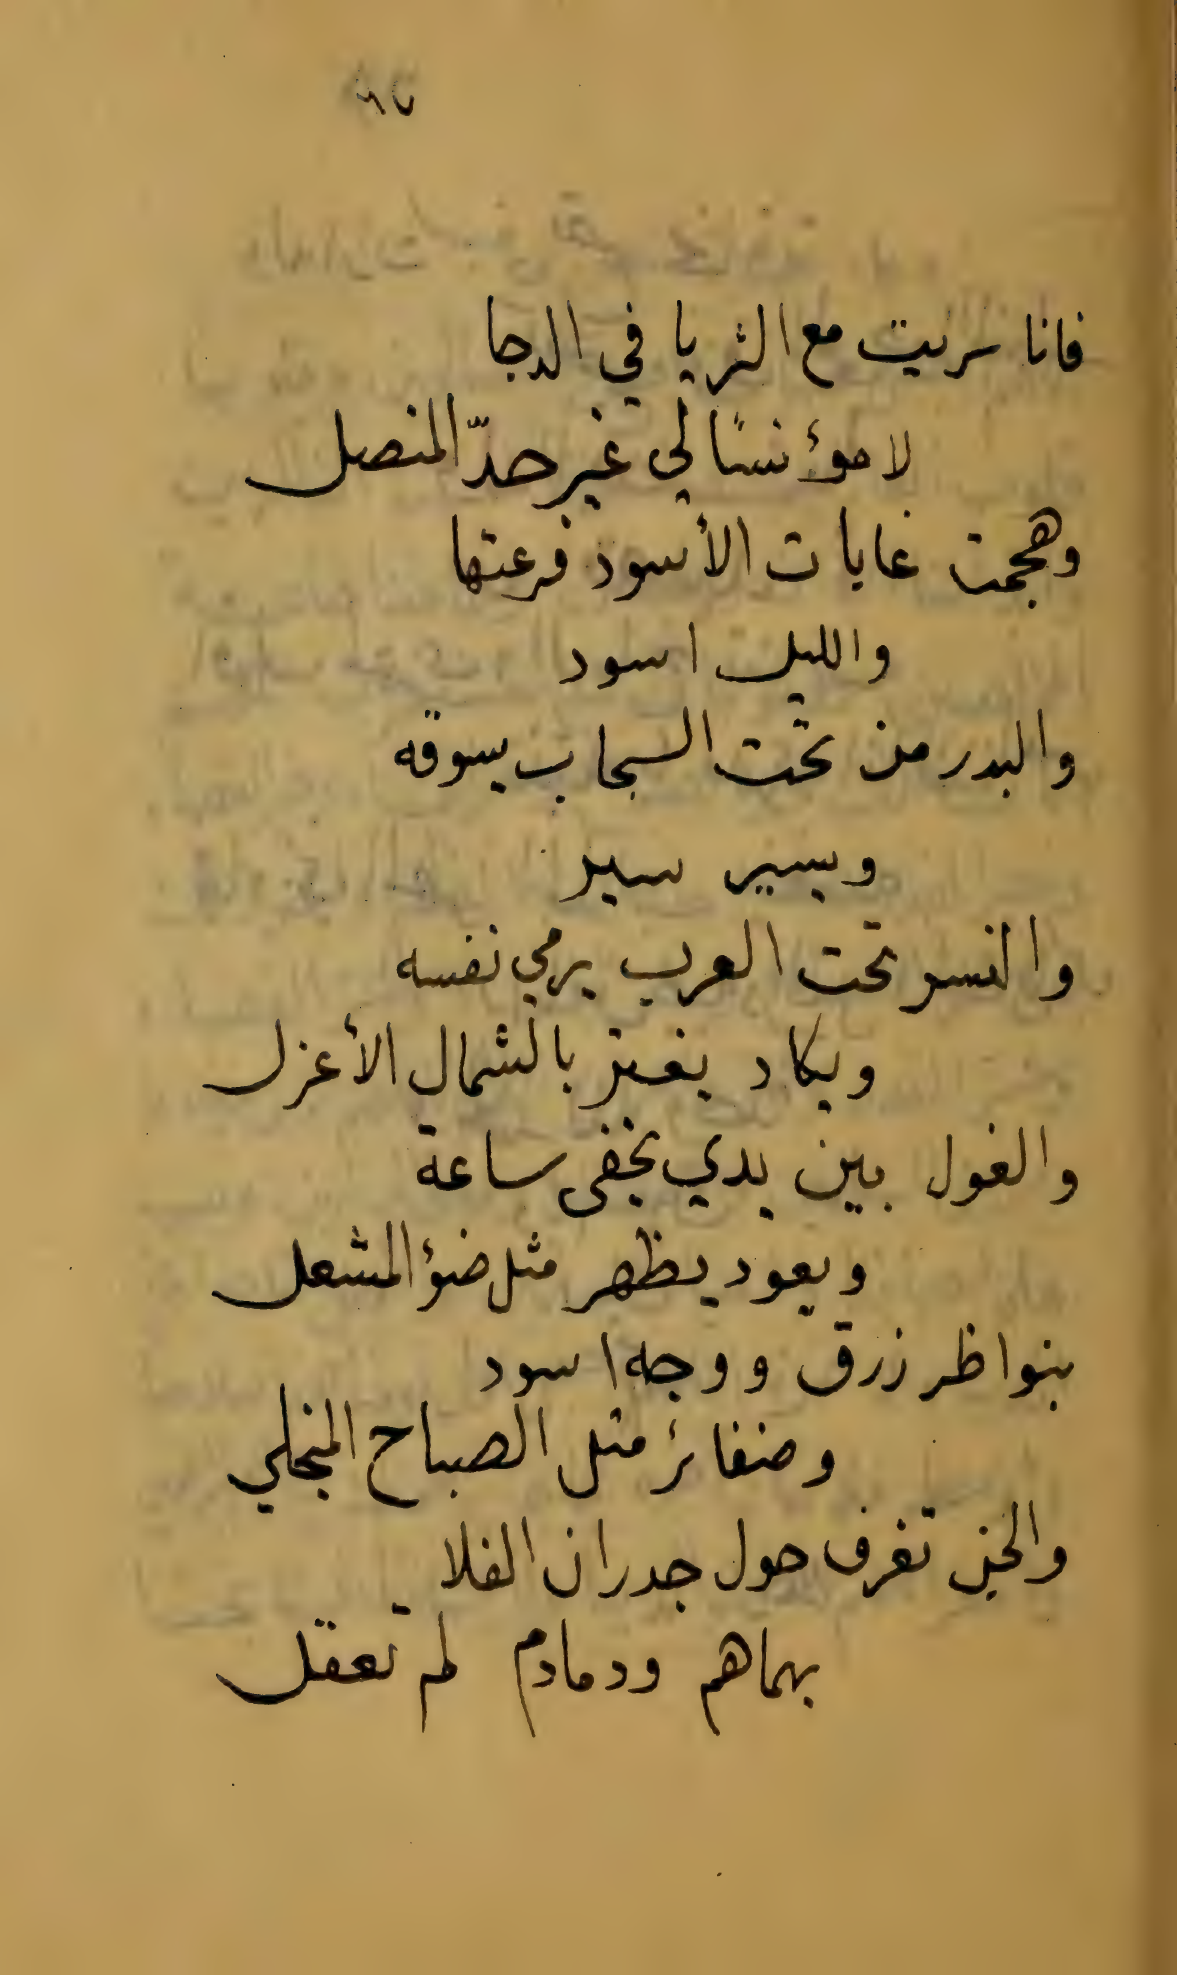 فانا سريت مع الثريا في الدجا
لا مؤنسًا لي غير حدّ المنصل
وهجمت غابات الأسود فرعتها
والليل اسود
والبدر من تحت السحاب يسوقه
ويسير سير
والنسر تحت العرب يرمي نفسه
ويكاد يغتر بالشمال الأعزل
والغول بين يدي يخفى ساعة
ويعود يظهر مثل ضؤ المشعل
بنواظر زرق ووجه اسود
وضفائر مثل الصباح المنجلي
والجن تغرف حول جدران الفلا
بهماهم ودمادم لم تعقل